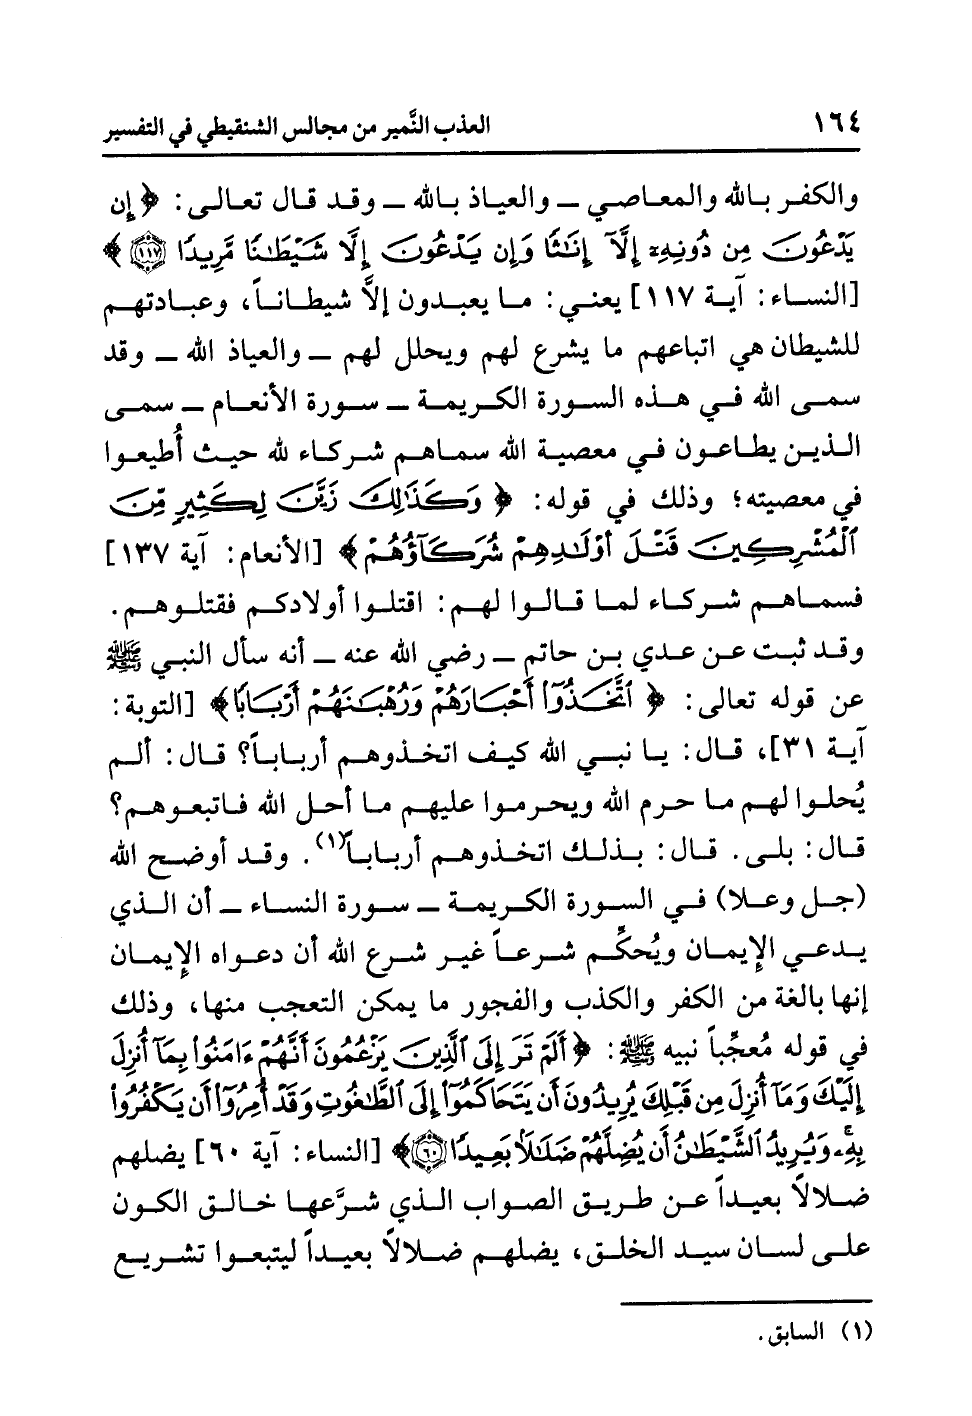 ١٦٤
العذب النَّمير من مجالس الشنقيطي في التفسير
والكفر بالله والمعاصي ــ والعياذ بالله ــ وقد قال تعالى: ﴿ إِن
يَدْعُونَ مِن دُونِهِۦٓ إِلَّآ إِنَٰثًا وَإِن يَدْعُونَ إِلَّا شَيْطَٰنًا مَّرِيدًا ﴿١١٧﴾ ﴾
[النساء: آية ١١٧] يعني: ما يعبدون إلاَّ شيطاناً، وعبادتهم
للشيطان هي اتباعهم ما يشرع لهم ويحلل لهم ــ والعياذ الله ــ وقد
سمى الله في هذه السورة الكريمة ــ سورة الأنعام ــ سمى
الذين يطاعون في معصية الله سماهم شركاء لله حيث أُطيعوا
في معصيته؛ وذلك في قوله: ﴿ وَكَذَٰلِكَ زَيَّنَ لِكَثِيرٍ مِّنَ
ٱلْمُشْرِكِينَ قَتْلَ أَوْلَٰدِهِمْ شُرَكَآؤُهُمْ ﴾ [الأنعام: آية ١٣٧]
فسماهم شركاء لما قالوا لهم: اقتلوا أولادكم فقتلوهم.
وقد ثبت عن عدي بن حاتم ــ رضي الله عنه ــ أنه سأل النبي ﷺ
عن قوله تعالى: ﴿ ٱتَّخَذُوٓا۟ أَحْبَارَهُمْ وَرُهْبَٰنَهُمْ أَرْبَابًا ﴾ [التوبة:
آية ٣١]، قال: يا نبي الله كيف اتخذوهم أرباباً؟ قال: ألم
يُحلوا لهم ما حرم الله ويحرموا عليهم ما أحل الله فاتبعوهم؟
قال: بلى. قال: بذلك اتخذوهم أرباباً(١). وقد أوضح الله
(جل وعلا) في السورة الكريمة ــ سورة النساء ــ أن الذي
يدعي الإيمان ويُحكِّم شرعاً غير شرع الله أن دعواه الإيمان
إنها بالغة من الكفر والكذب والفجور ما يمكن التعجب منها، وذلك
في قوله مُعجِّباً نبيه ﷺ: ﴿ أَلَمْ تَرَ إِلَى ٱلَّذِينَ يَزْعُمُونَ أَنَّهُمْ ءَامَنُوا۟ بِمَآ أُنزِلَ
إِلَيْكَ وَمَآ أُنزِلَ مِن قَبْلِكَ يُرِيدُونَ أَن يَتَحَاكَمُوٓا۟ إِلَى ٱلطَّٰغُوتِ وَقَدْ أُمِرُوٓا۟ أَن يَكْفُرُوا۟
بِهِۦ وَيُرِيدُ ٱلشَّيْطَٰنُ أَن يُضِلَّهُمْ ضَلَٰلًۢا بَعِيدًا ﴿٦٠﴾ ﴾ [النساء: آية ٦٠] يضلهم
ضلالاً بعيداً عن طريق الصواب الذي شرَّعها خالق الكون
على لسان سيد الخلق، يضلهم ضلالاً بعيداً ليتبعوا تشريع
(١) السابق.